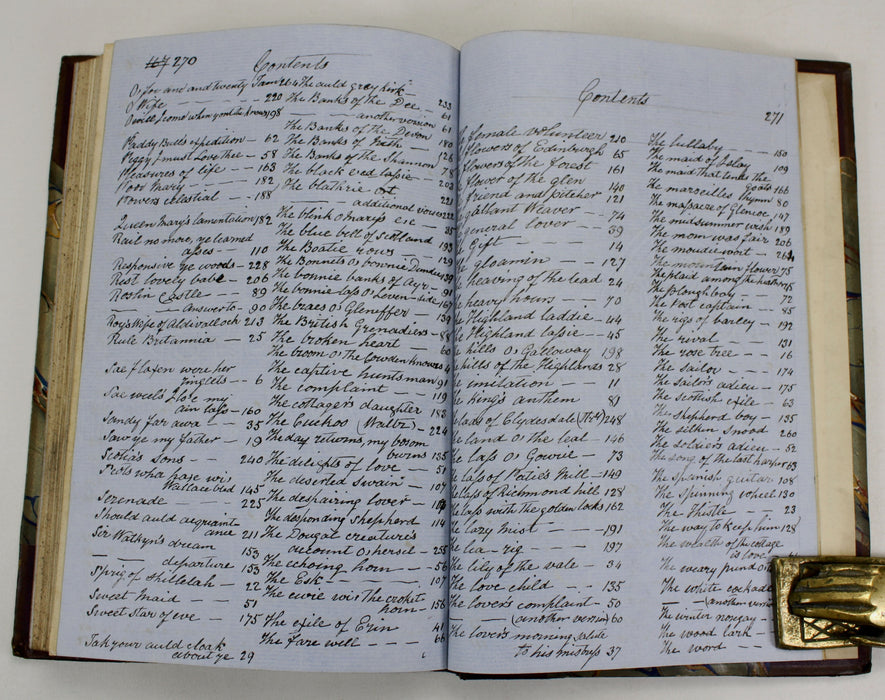 270
Contents
O, for ane and twenty Tam 264
O Wife — — — — — 220
198
Paddy Bull's expedition — 62
Peggy I must love thee — 58
Pleasures of life — — 163
Poor Mary — — — 182
Powers celestial — — 188
Queen Mary's lamentation 182
Rail no more, ye learned
asses — — 110
Responsive ye woods — 228
Rest lovely babe — 206
Roslin Castle — — 89
— — Answer to — 90
Roy's Wife of Aldivalloch 213
Rule Britannia — — 25
Sae flaxen were her
ringlets — — 6
Sae weel's I lo'e my
ain lass — 160
Sandy far awa — — 35
Saw ye my father — 19
Scotia's sons — — 240
Scots wha hae wi'
Wallace bled 145
Serenade — — — 225
Should auld acquaint
ance 211
Sir Watkyn's dream 153
— — departure 153
Sprig of shillelah — 22
Sweet maid 51
Sweet star of eve — 175
Tak your auld cloak
about ye 29
The auld grey kirk — 233
The Banks of the Dee — 61
— — another version 61
The Banks of the Devon 180
The Banks of Nith — 126
The Banks of the Shannon 78
The black eyed lassie — 203
The blathrie o't 221
— — additional verses
The blink o' Mary's e'e — 35
The blue bell of Scotland 193
The Boatie rows — 129
The Bonnets o' bonnie Dundee
The bonnie banks of Ayr — 91
The bonnie lass o' Leven-side 167
The braes o' Gleniffer — 139
The British Grenadiers — 88
The broken heart — 60
The broom o' the Cowdenknows
The captive huntsman 91
The complaint — — 119
The cottager's daughter 183
The Cuckoo (Waltz) — 224
The day returns, my bosom
burns 155
The delights of love — 51
The deserted Swain — 107
The despairing lover —
The desponding Shepherd 114
The Dougal creature's
account o' hersel — 255
The echoing horn — — 56
The Esk — — — 107
The ewie wi' the crooket
horn — 156
The exile of Erin 41
The farewell — — — 66
Contents
271
female volunteer 210
flowers of Edinburgh 65
flowers of the forest 161
flower of the glen 140
friend and pitcher 121
gallant Weaver — 74
general lover — — 39
Gift — — — 14
gloamin — — — 127
heaving of the lead 24
heavy hours — — 70
Highland laddie — 44
Highland lassie — — 45
hills o' Galloway 198
hills of the Highlands 28
imitation — — — 11
King's anthem 80
lads of Clydesdale 248
land o' the leal — 146
lass o' Gowrie — 73
lass of Patie's Mill — 149
lass of Richmond hill 128
lass with the golden locks 162
lazy mist — — — 191
lea-rig — — — 197
The lily of the vale — 34
The love child — — 135
The lover's complaint — 50
— — (another version) 60
The lover's morning salute
to his mistress 37
The lullaby — — — 150
The maid of Islay 109
The maid that tends the
goats 166
The marseilles hymn 80
The massacre of Glencoe 147
The midsummer wish 189
The morn was fair 206
The moudiewort —
The mountain flower 75
The plaid among the heather
The ploughboy — — 72
The Post captain — — 85
The rigs of barley — 192
The rival — — — 131
The rose tree — — 16
The sailor — — — 174
The sailor's adieu — — 175
The scottish exile — 63
The shepherd boy — 135
The silken snood 260
The soldier's adieu — 52
The song of the last harper 63
The Spanish guitar 108
The spinning wheel 130
The thistle — — 23
The way to keep him 128
The wealth of the cottage
is love
The weary pund o'
The white cockade
— (another version
The winter nosgay —
The wood lark — —
The word — —